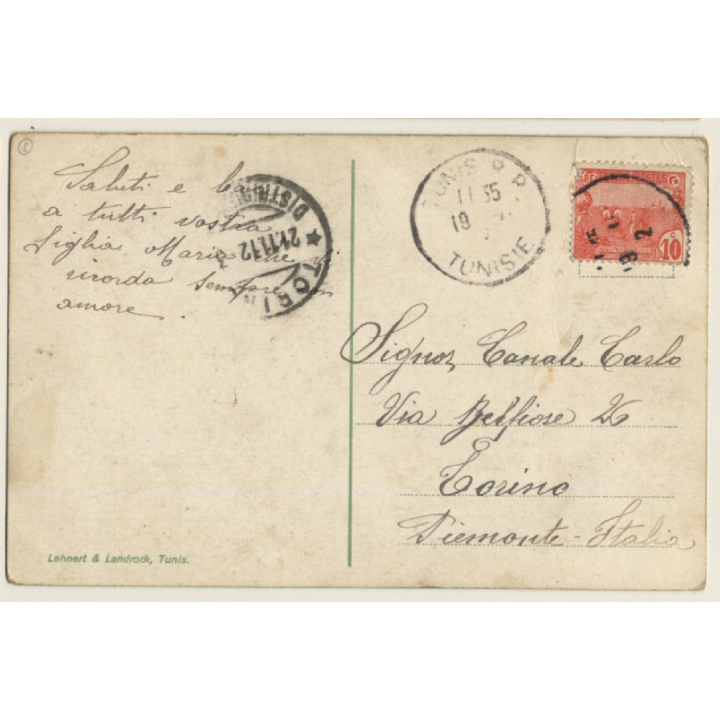 Saluti e
a tutti vostra
figlia Maria che vi
ricorda sempre con
amore.
TORI
DISTRIBU
21.11.12
TUNIS R.P.
11 35
19
TUNISIE
10
Signor Canale Carlo
Via Belfiore
Torino
Piemonte-Italia
Lehnert & Landrock, Tunis.